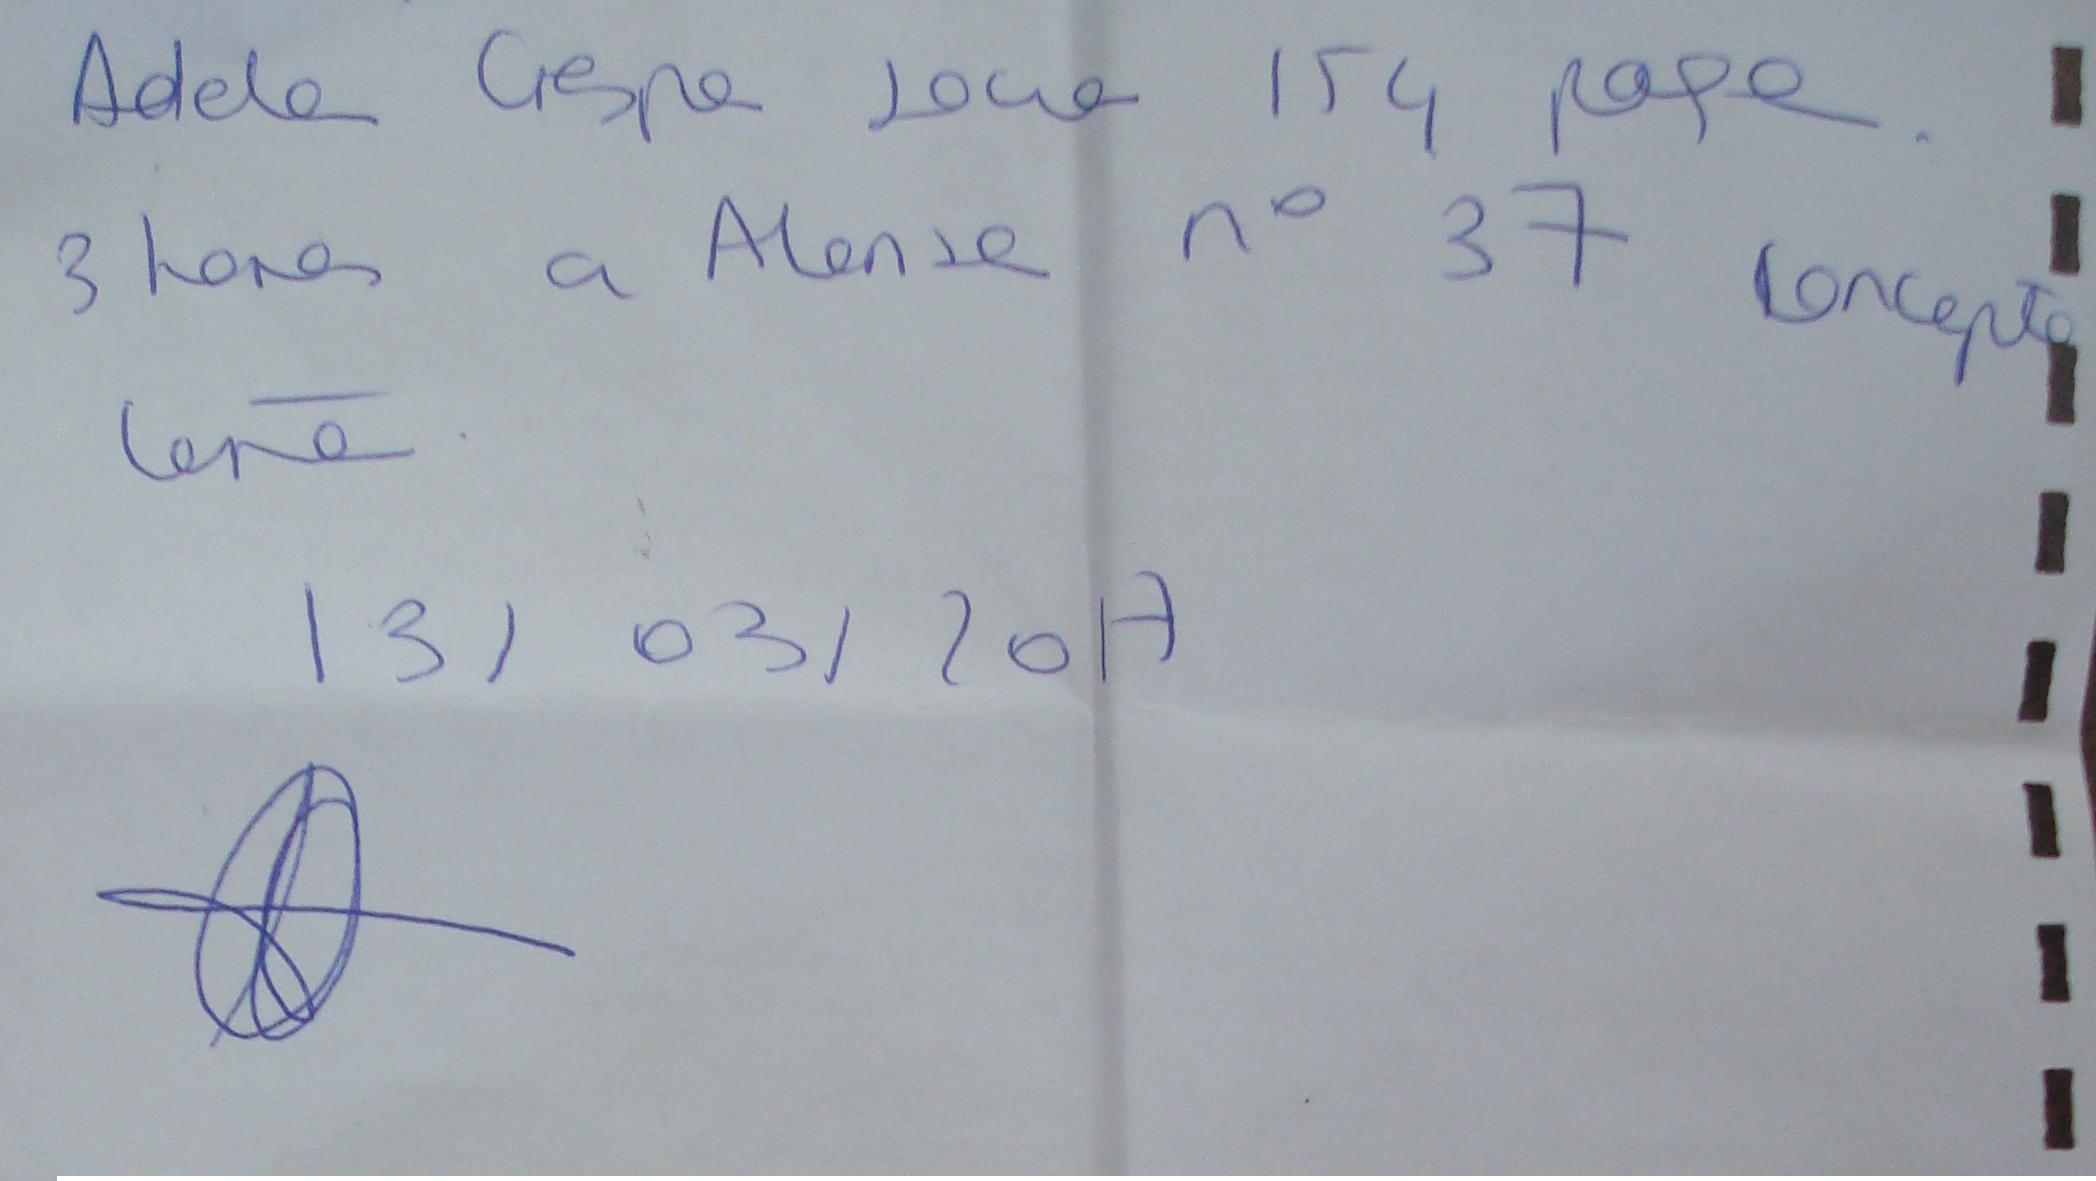 Adela Crespa socia 154 paga.
3 horas a Atensa nº 37 concepto
leña.
13/03/2017